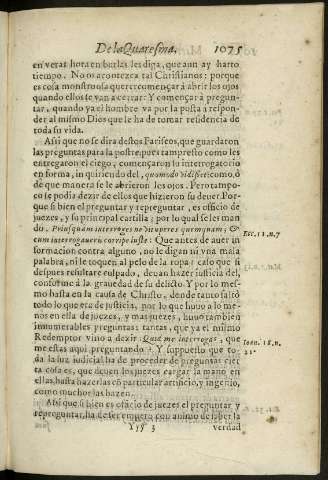 De la Quaresma. 1075
en veras hora en birlas les diga, que aun ay harto
tiempo. No os acontezca tal Christianos: porque
es cosa monstruosa querer començar à abrir los ojos
quando ellos se van a cerrar: Y començar a pregun-
tar, quando ya el hombre va por la posta a respon-
der al mismo Dios que le ha de tomar residencia de
toda su vida.
Assi que no se dira destos Fariseos, que guardaron
las preguntas para la postre, pues tan presto como les
entregaron el ciego, començaron su interrogatorio
en forma, inquiriendo del, quomodo vidisset: como, ò
de que manera se le abrieron los ojos. Pero tampo-
co se podia dezir de ellos que hizieron su dever. Por-
que si bien el preguntar y repreguntar, es oficio de
juezes, y su principal cartilla; por lo qual se les man-
do. Priusquam interroges ne vituperes quemquam; &
cum interrogaveris corripe iuste: Que antes de aver in
formacion contra alguno, no le digan ni una mala
palabra, ni le toquen al pelo de la ropa: caso que si
despues resultare culpado, devan hazer justicia del,
conforme à la gravedad de su delicto. Y por lo mes-
mo hasta en la causa de Christo, donde tanto faltò
todo lo que era de justicia, por lo que huvo a lo me-
nos en ella de juezes, y mas juezes, huvo tambien
innumerables preguntas: tantas, que ya el mismo
Redemptor vino a dezir: Quid me interrogas, que
me estàs aqui preguntando? Y supuesto que to-
da la luz judicial ha de proceder de preguntas cier
ta cosa es, que deven los juezes cargar la mano en
ellas hasta hazerlas en particular artificio, y ingenio,
como muchos las hazen.
Assi que si bien es oficio de juezes el preguntar y
repreguntar, ha de ser empero con animo de saber la
Yyy 3 verdad
Ecc. 11. n. 7
Ioan. 18. n.
21.